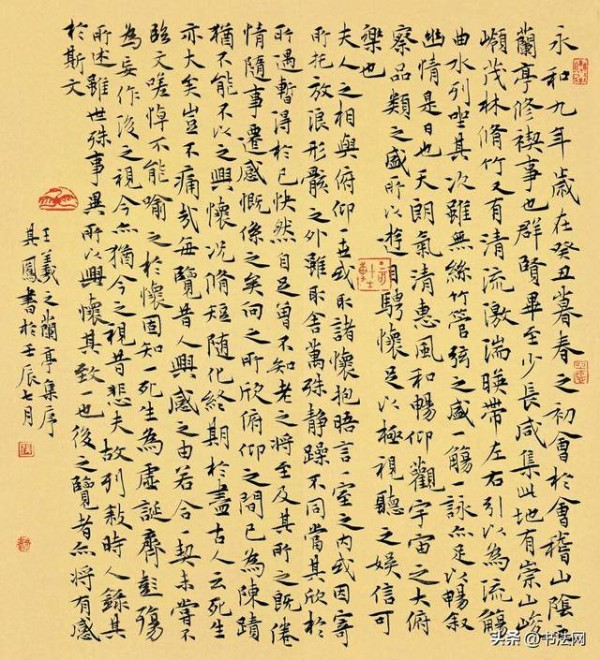 永和九年歲在癸丑暮春之初會於會稽山陰之
蘭亭修禊事也群賢畢至少長咸集此地有崇山峻
嶺茂林脩竹又有清流激湍暎帶左右引以為流觴
曲水列坐其次雖無絲竹管弦之盛一觴一詠亦足以暢敘
幽情是日也天朗氣清惠風和暢仰觀宇宙之大俯
察品類之盛所以遊目騁懷足以極視聽之娛信可
樂也
夫人之相與俯仰一世或取諸懷抱晤言一室之內或因寄
所託放浪形骸之外雖取舍萬殊靜躁不同當其欣於
所遇暫得於己快然自足曾不知老之將至及其所之既倦
情隨事遷感慨係之矣向之所欣俯仰之間已為陳蹟
猶不能不以之興懷況脩短隨化終期於盡古人云死生
亦大矣豈不痛哉每覽昔人興感之由若合一契未嘗不
臨文嗟悼不能喻之於懷固知一死生為虛誕齊彭殤
為妄作後之視今亦猶今之視昔悲夫故列敘時人錄其
所述雖世殊事異所以興懷其致一也後之覽者亦將有感
於斯文
王羲之蘭亭集序
其鳳書於壬辰七月
头条 @书法网